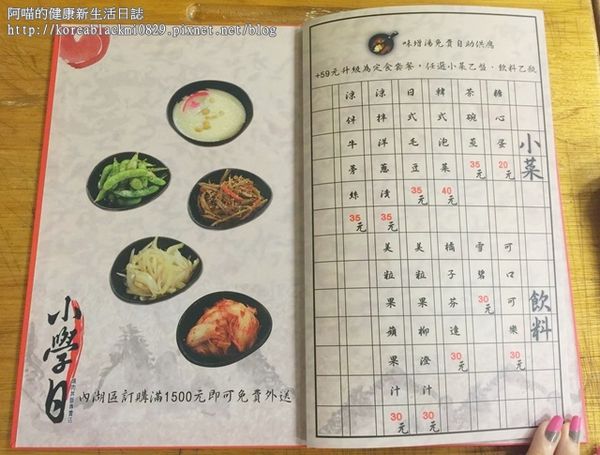 阿喵的健康新生活日誌
http://koreablackmi0829.pixnet.net/blog
小學日
內湖區訂購滿1500元即可免費外送
味增湯免費自助供應
+59元升級為定食套餐，任選小菜乙盤、飲料乙瓶
小菜
糖心蛋 20元
茶碗蒸 35元
韓式泡菜 40元
日式毛豆 35元
涼拌洋蔥 35元
涼伴牛蒡絲 35元
飲料
可口可樂 30元
雪碧 30元
橘子芬達 30元
美粒果柳澄汁 30元
美粒果蘋果汁 30元